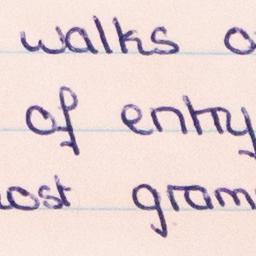 walks o
of entry
ost gram